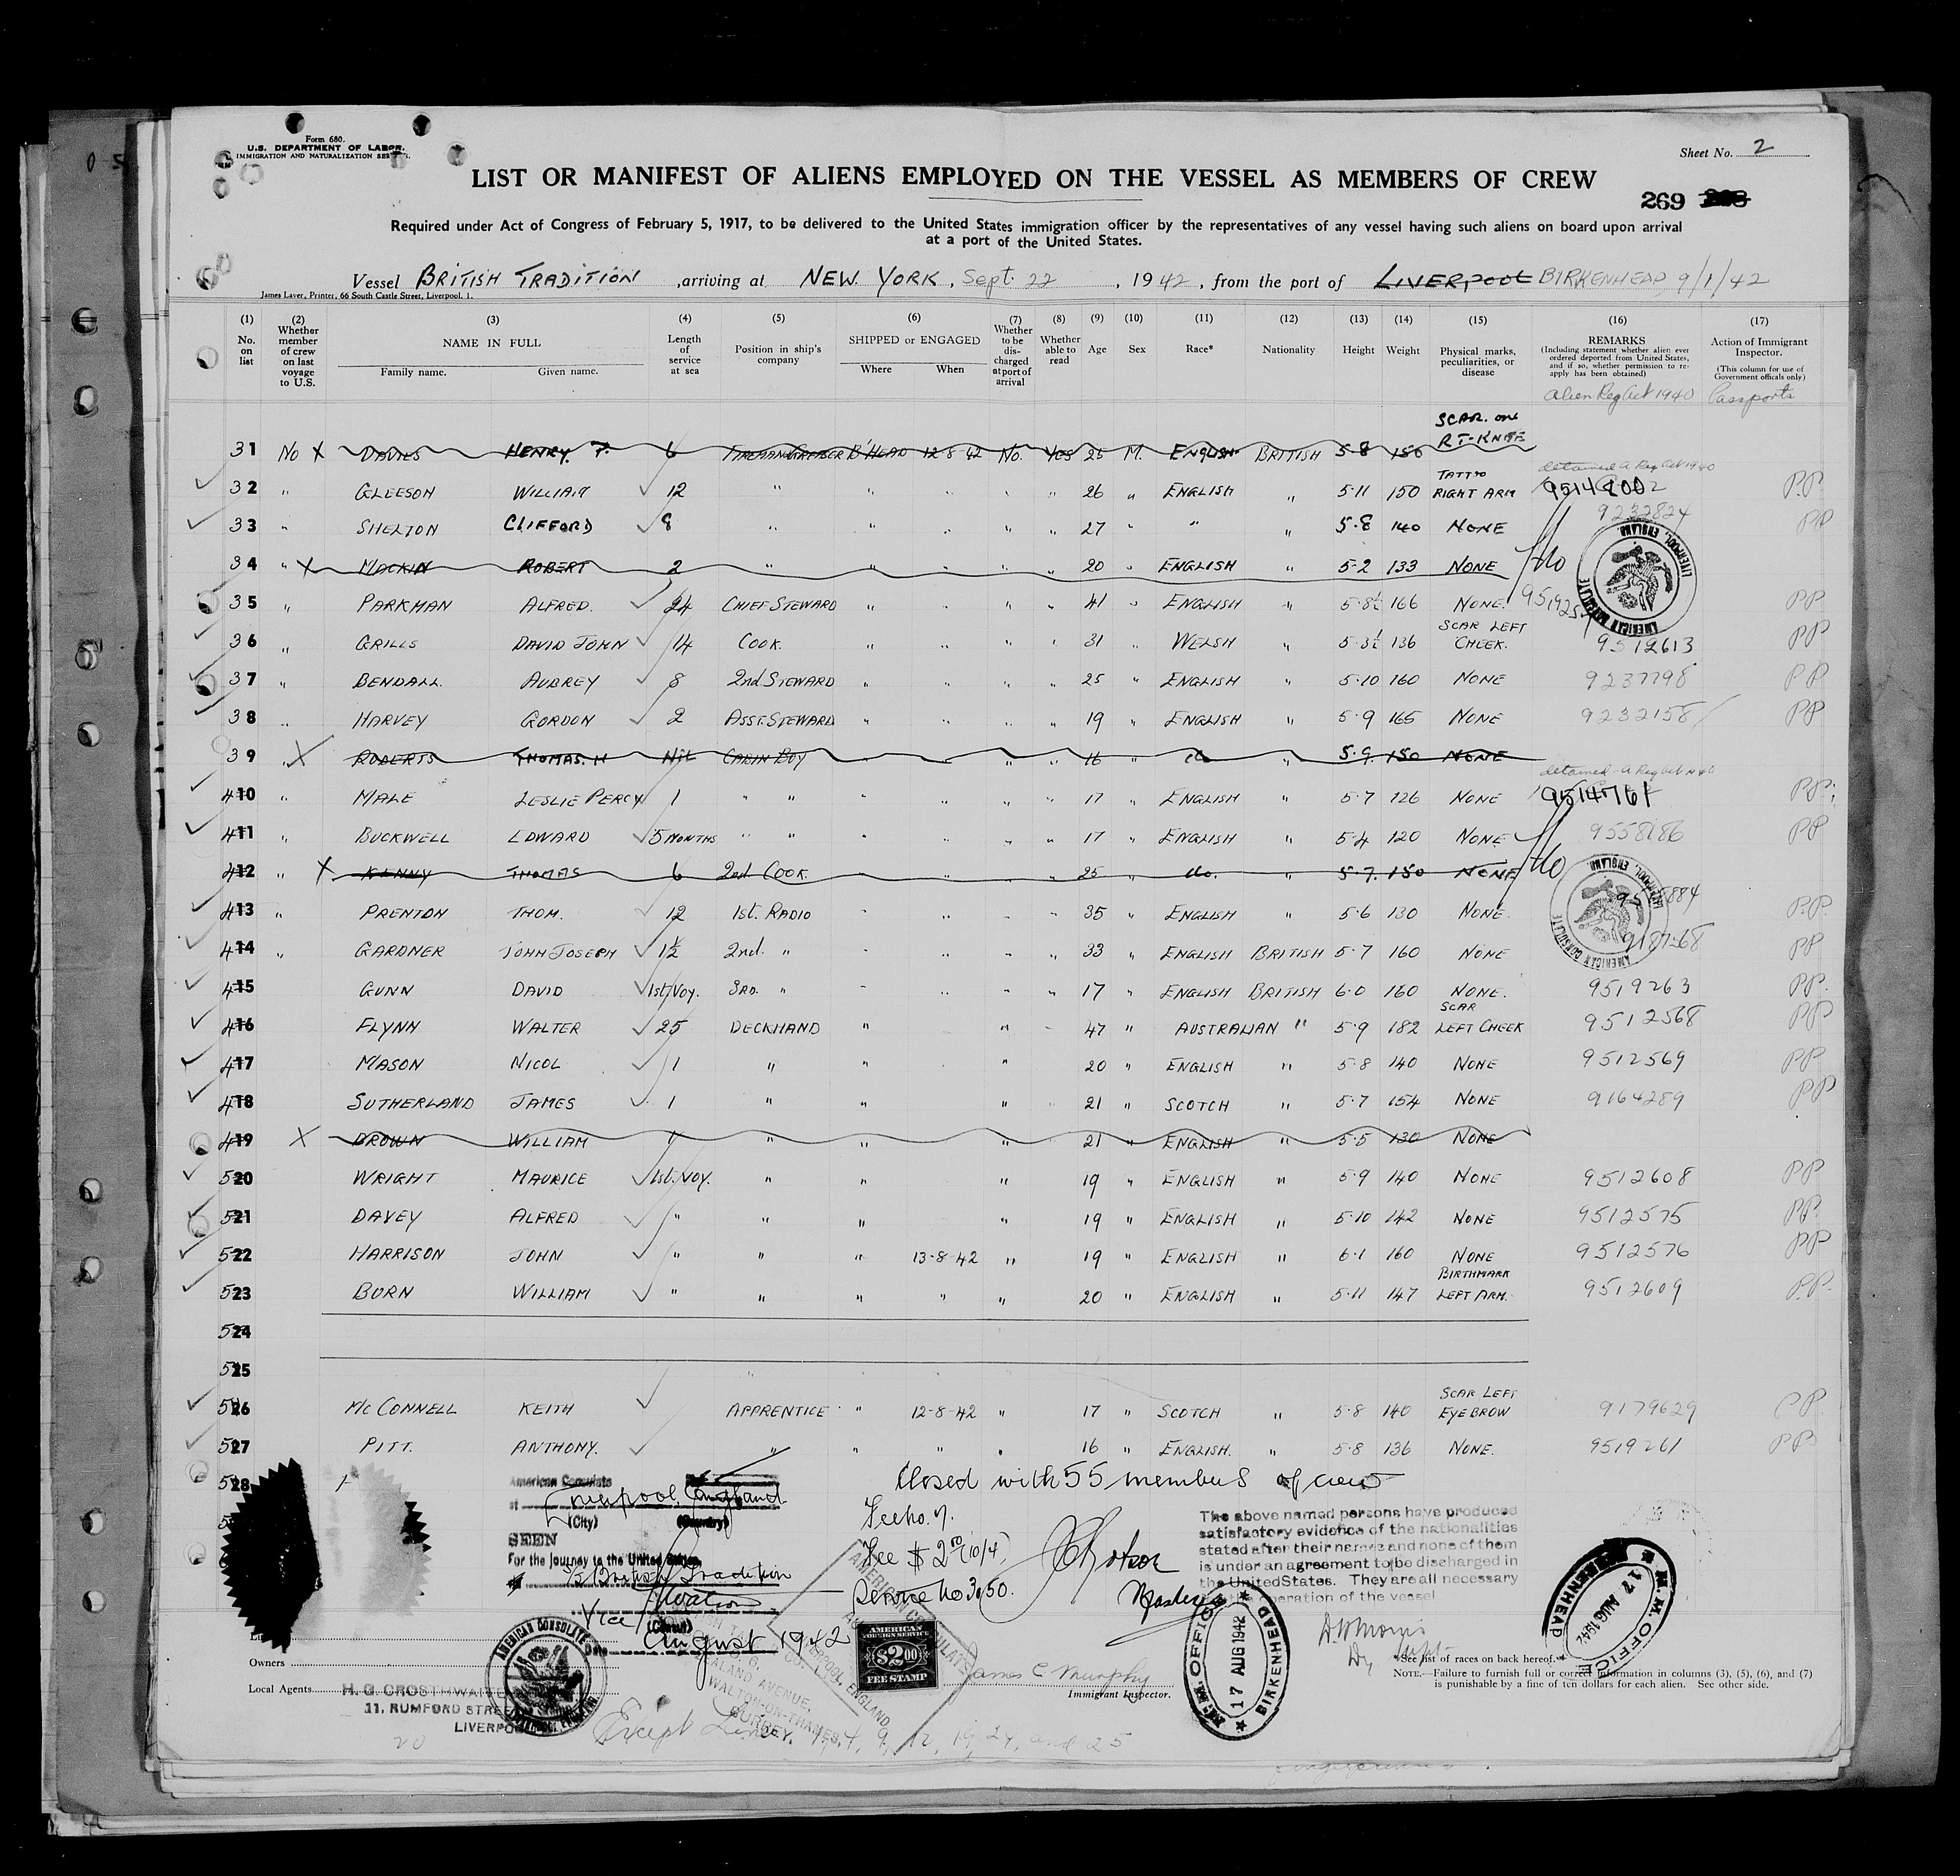 Form 680.
U.S. DEPARTMENT OF LABOR.
IMMIGRATION AND NATURALIZATION
Sheet No. 2
LIST OR MANIFEST OF ALIENS EMPLOYED ON THE VESSEL AS MEMBERS OF CREW
269
Required under Act of Congress of February 5, 1917, to be delivered to the United States immigration officer by the representatives of any vessel having such aliens on board upon arrival
at a port of the United States.
Vessel BRITISH TRADITION , arriving at NEW YORK, Sept. 22 , 1942 , from the port of LIVERPOOL BIRKENHEAD 9/1/42
James Laver, Printer, 66 South Castle Street, Liverpool, 1.
(1) No. on list
(2) Whether member of crew on last voyage to U.S.
(3) NAME IN FULL Family name. Given name.
(4) Length of service at sea
(5) Position in ship's company
(6) SHIPPED or ENGAGED Where When
(7) Whether to be discharged at port of arrival
(8) Whether able to read
(9) Age
(10) Sex
(11) Race*
(12) Nationality
(13) Height
(14) Weight
(15) Physical marks, peculiarities, or disease
(16) REMARKS (Including statement whether alien ever ordered deported from United States, and if so, whether permission to re-apply has been obtained)
(17) Action of Immigrant Inspector. (This column for use of Government officials only)
Alien Reg Act 1940 Passports
31 No X DAVIES HENRY 6 FIREMAN GREASER B'HEAD 12 8 42 No. YES 25 M. ENGLISH BRITISH 5-8 150 SCAR. on RT-KNEE
detained a Reg Act 1940
32 " GLEESON WILLIAM 12 " " " " " 26 " ENGLISH " 5-11 150 TATTO RIGHT ARM P.P.
33 " SHELTON CLIFFORD 8 " " " " " 27 " " " 5-8 140 NONE 9232824 PP
34 " X MACKIN ROBERT 2 " " " " " 20 " ENGLISH " 5-2 133 NONE
35 " PARKMAN ALFRED. 24 CHIEF STEWARD " " " " 41 " ENGLISH " 5-8½ 166 NONE. PP
36 " GRILLS DAVID JOHN 14 COOK. " " " " 31 " WELSH " 5-3½ 136 SCAR LEFT CHEEK. 9512613 PP
37 " BENDALL. AUBREY 8 2nd STEWARD " " " " 25 " ENGLISH " 5-10 160 NONE 9237798 PP
38 " HARVEY GORDON 2 ASST. STEWARD " " " " 19 " ENGLISH " 5-9 165 NONE 9232158 PP
39 " X ROBERTS THOMAS. H Nil CABIN BOY " " " " 16 " do " 5-9. 150 NONE
detained a Reg Act 1940
410 " MALE LESLIE PERCY 1 " " " " " " 17 " ENGLISH " 5-7 126 NONE 9514761 PP
411 " BUCKWELL EDWARD 5 MONTHS " " " " " " 17 " ENGLISH " 5-4 120 NONE 9558186 PP
412 " X KENNY THOMAS 6 2nd COOK. " " " " 25 " do. " 5-7. 150 NONE
413 " PRENTON THOM. 12 1st. RADIO " " " " 35 " ENGLISH " 5-6 130 NONE. P.P.
414 " GARDNER JOHN JOSEPH 1½ 2nd. " " " " " 33 " ENGLISH BRITISH 5-7 160 NONE PP
415 GUNN DAVID 1st Voy. 3RD. " " " " " 17 " ENGLISH BRITISH 6-0 160 NONE. 9519263 PP.
416 FLYNN WALTER 25 DECKHAND " " " 47 " AUSTRALIAN " 5-9 182 SCAR LEFT CHEEK 9512568 PP
417 MASON NICOL 1 " " " 20 " ENGLISH " 5-8 140 NONE 9512569 PP
418 SUTHERLAND JAMES 1 " " " 21 " SCOTCH " 5-7 154 NONE 9164289 PP
419 X BROWN WILLIAM " " " " 21 " ENGLISH " 5-5 130 NONE
520 WRIGHT MAURICE 1st. Voy. " " " 19 " ENGLISH " 5-9 140 NONE 9512608 PP
521 DAVEY ALFRED " " " " 19 " ENGLISH " 5-10 142 NONE 9512575 PP.
522 HARRISON JOHN " " " 13-8-42 " 19 " ENGLISH " 6-1 160 NONE 9512576 PP
523 BORN WILLIAM " " " " " 20 " ENGLISH " 5-11 147 BIRTHMARK LEFT ARM. 9512609 P.P.
524
525
526 McCONNELL KEITH APPRENTICE " 12-8-42 " 17 " SCOTCH " 5-8 140 SCAR LEFT EYEBROW 9179629 PP
527 PITT. ANTHONY. " " " " 16 " ENGLISH. " 5-8 136 NONE. 9519261 PP
528
Closed with 55 members of crew
American Consulate
at Liverpool, England
(City) (Country)
SEEN
For the journey to the United States
British Tradition
Vice
(Consul)
Date August 1942
Fee no. 7.
Fee $ 2 00 (10/4)
Service No. 3050.
Master
The above named persons have produced
satisfactory evidence of the nationalities
stated after their names and none of them
is under an agreement to be discharged in
the United States. They are all necessary
operation of the vessel
AMERICAN CONSULATE
AMERICAN FOREIGN SERVICE $2.00 FEE STAMP
M.M. OFFICE 17 AUG 1942 BIRKENHEAD
M.M. OFFICE 17 AUG 1942 BIRKENHEAD
AMERICAN CONSULATE LIVERPOOL, ENGLAND
AMERICAN CONSULATE LIVERPOOL, ENGLAND
Owners
Local Agents H. G. CROSTHWAITE
11, RUMFORD STREET
LIVERPOOL
WALTON-ON-THAMES,
SURREY.
James C Murphy
Immigrant Inspector.
*See list of races on back hereof.
NOTE.—Failure to furnish full or correct information in columns (3), (5), (6), and (7)
is punishable by a fine of ten dollars for each alien. See other side.
Except Lines 1, 4, 9, 12, 19, 24, and 25